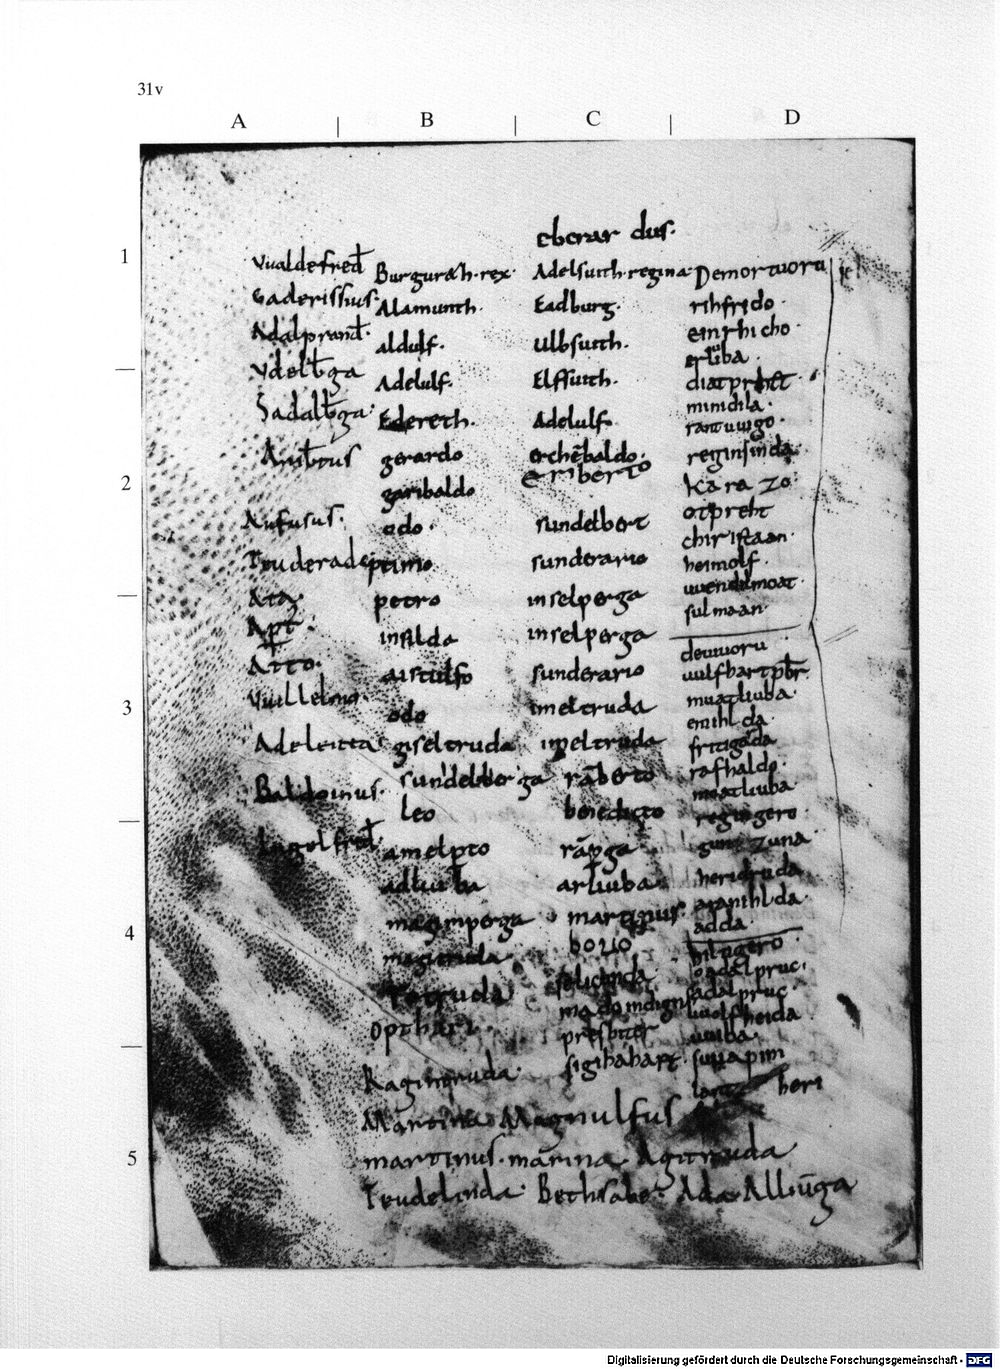 31v
A | B | C | D
1
2
3
4
5
Uualdefred
Gaderissius
Adalprand
Ydelbga
Sadalbga
Aributus
Aufusus
Teuderade
Ata
Apt
Atto
Vuillelmo
Adeleitta
Baldoinus
Ingelfred
Burgureth rex
Alamunth
aldulf
Adelulf
Edereth
gerardo
garibaldo
odo
primo
petro
insilda
aistulfo
odo
giseltruda
sundelberga
leo
amelpto
adliuba
magimperga
magitruda
opthari
Ragintruda
eberardus
Adelsuith regina
Eadburg
Ulbsuith
Elfsuith
Adelulf
erchebaldo
eriberto
sundelbert
sunderario
inselperga
inselperga
sunderario
imeltruda
imeltruda
raberto
benedicto
rāpga
arliuba
martinus
bouo
presbiter
sigihahart
Demortuoru
rihfrido
einrhicho
erliba
diatpreht
minidila
rantuuigo
reginsinda
Karazo
otpreht
chiristaan
heimolf
uuendilmoat
sulmaan
deuiuoru
uulfhart pbr
muatliuba
emihlda
fritigada
rafhaldo
moatliuba
regingero
gunzuna
heridruda
aganihlda
adda
hiltigero
oadalpruc
adalpruc
uuolfheida
Martina Magnulfus
martinus marina Agitruda
Teudelinda Bethsabe Ada Alliūga
Digitalisierung gefördert durch die Deutsche Forschungsgemeinschaft - DFG